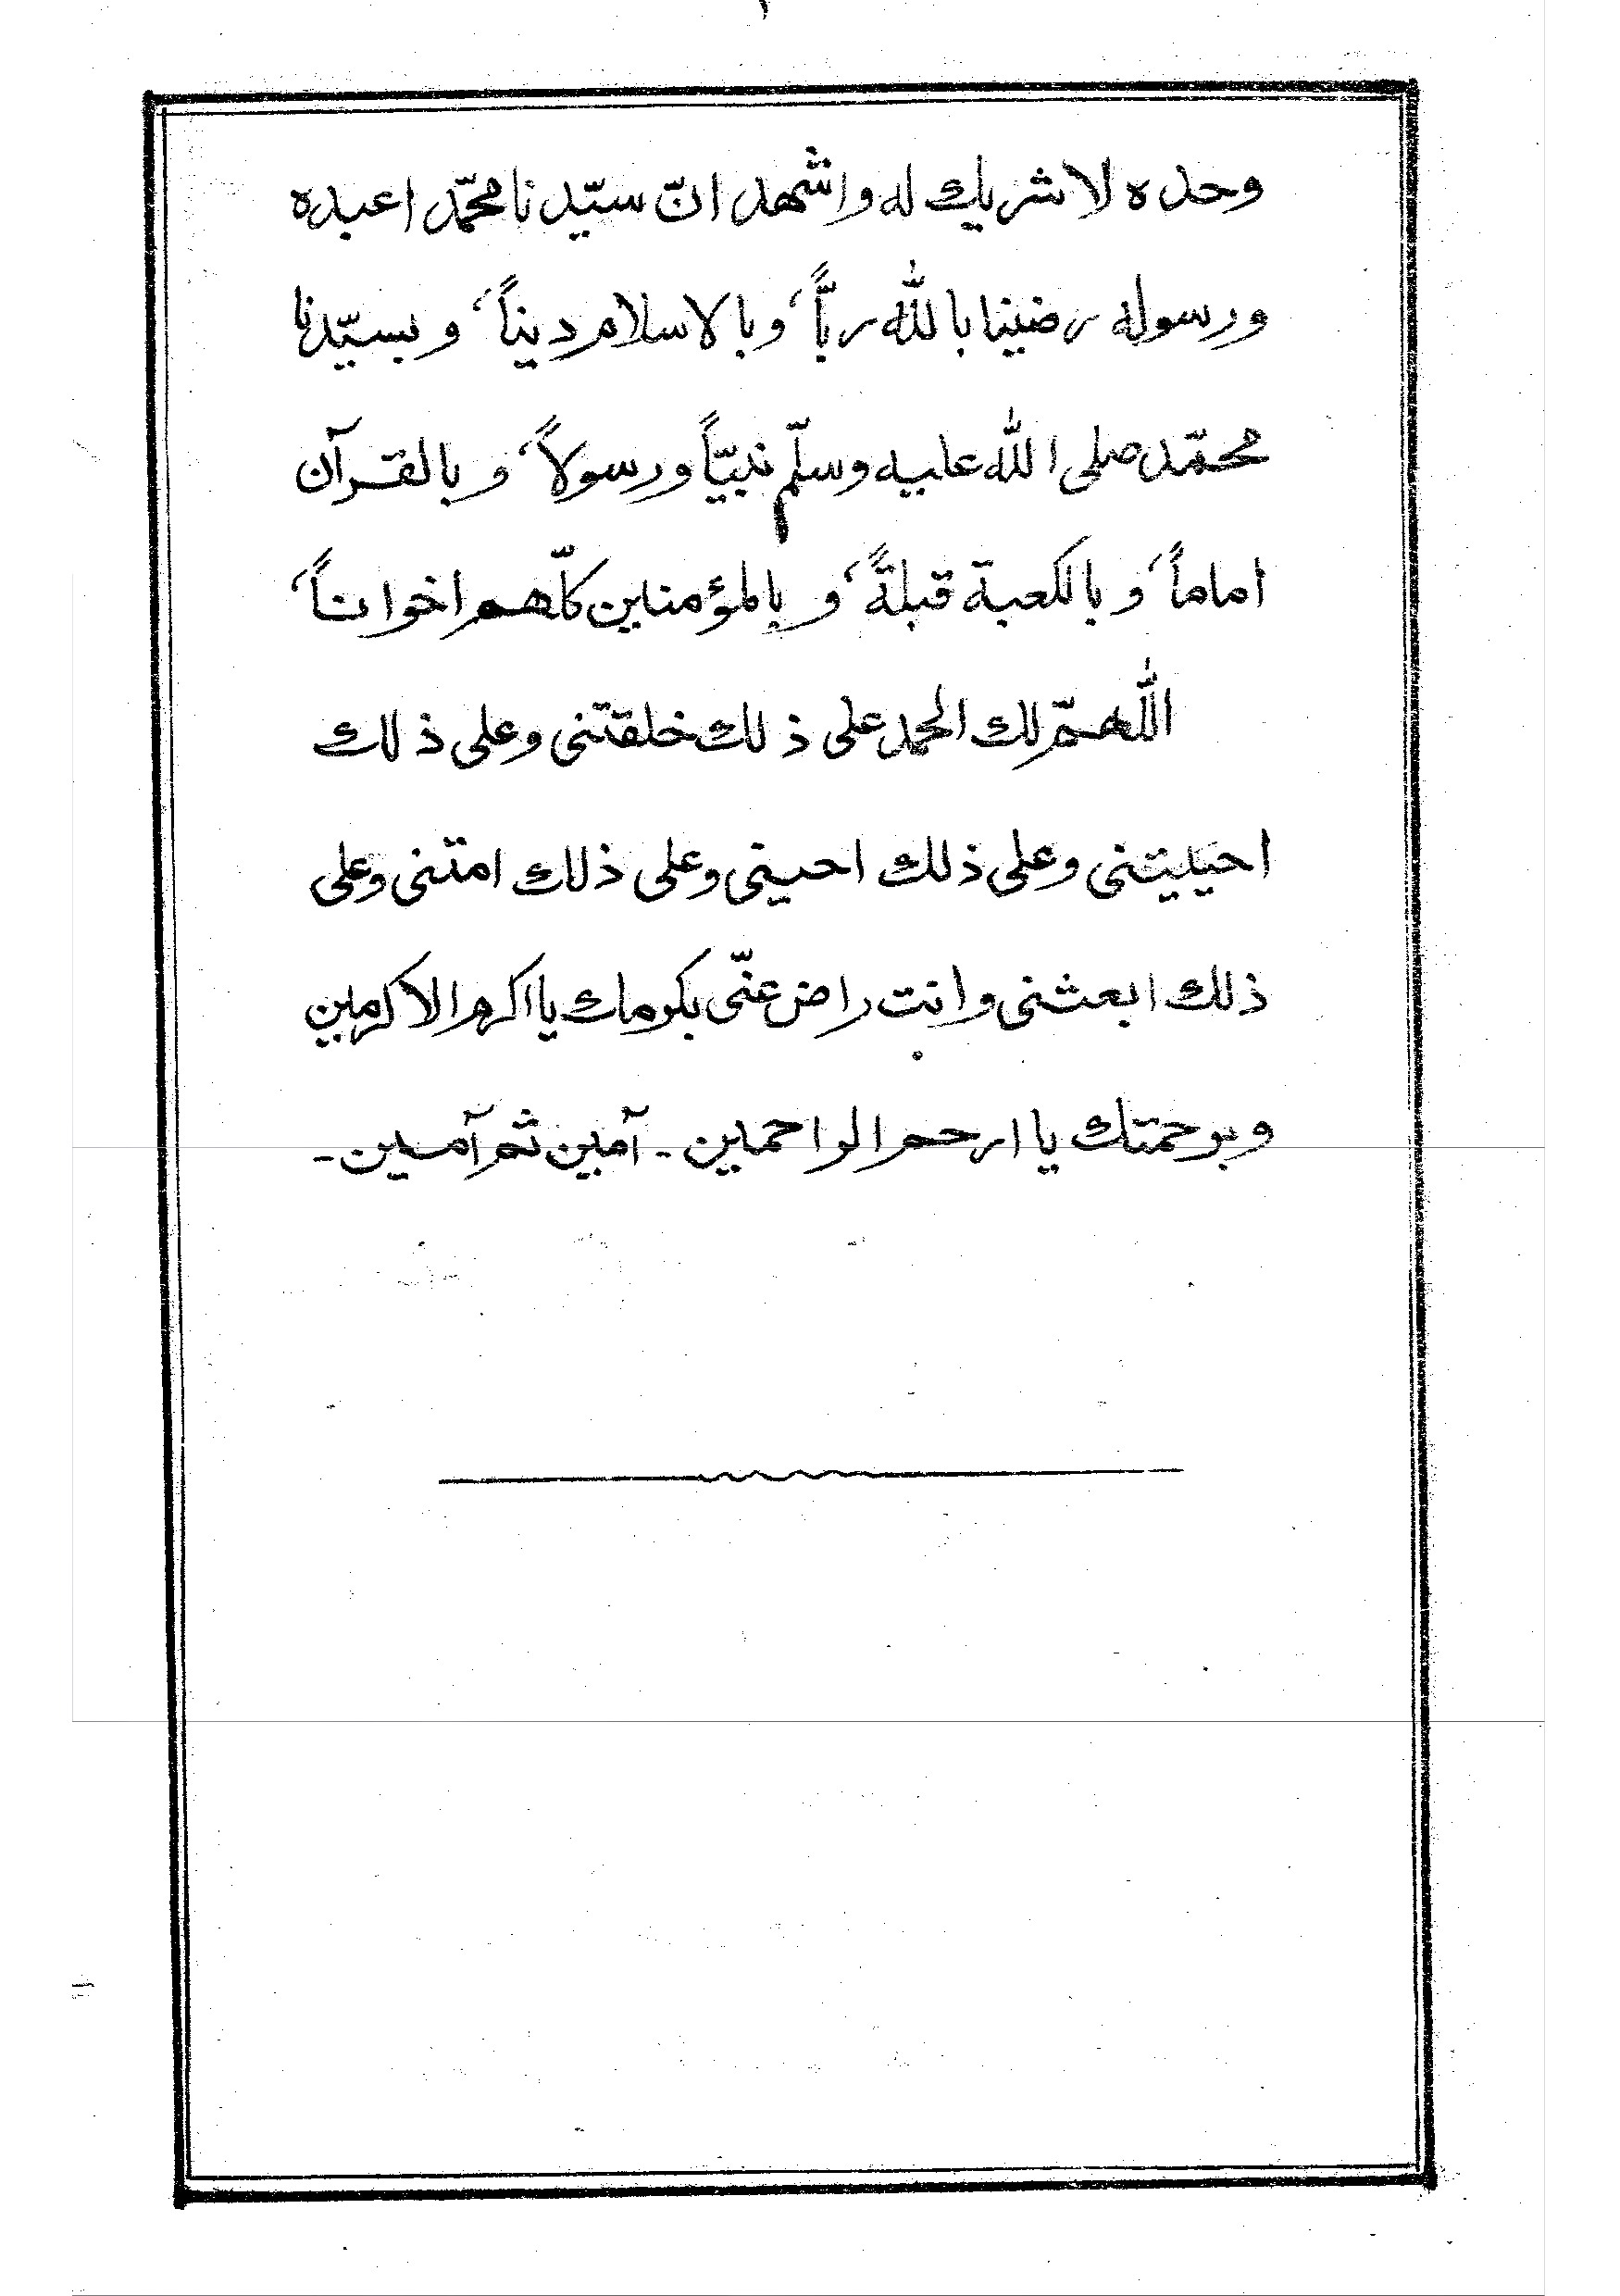 وحده لا شريك له واشهد انّ سيّدنا محمّد اعبده
ورسوله رضينا بالله ربّاً، وبالاسلام ديناً، وبسيّدنا
محمّد صلى الله عليه وسلّم نبيّاً ورسولاً، وبالقرآن
اماماً، وبالكعبة قبلةً، وبالمؤمنين كلّهم اخواناً،
اللهمّ لك الحمد على ذلك خلقتنى وعلى ذلك
احييتنى وعلى ذلك احينى وعلى ذلك امتنى وعلى
ذلك ابعثنى وانت راض عنّى بكرمك يا اكرم الاكرمين
وبرحمتك يا ارحم الراحمين - آمين ثم آمين -